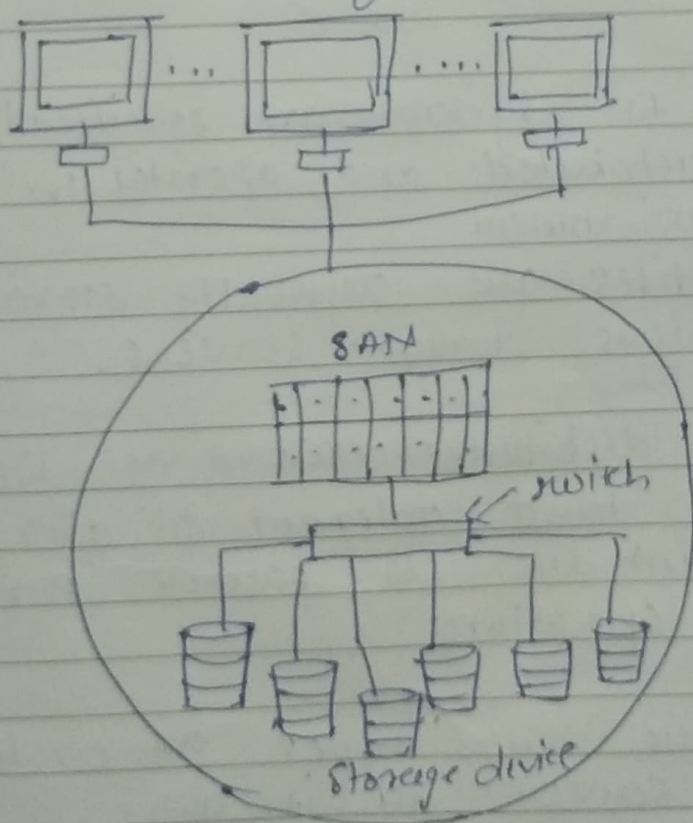 SAN
switch
Storage device